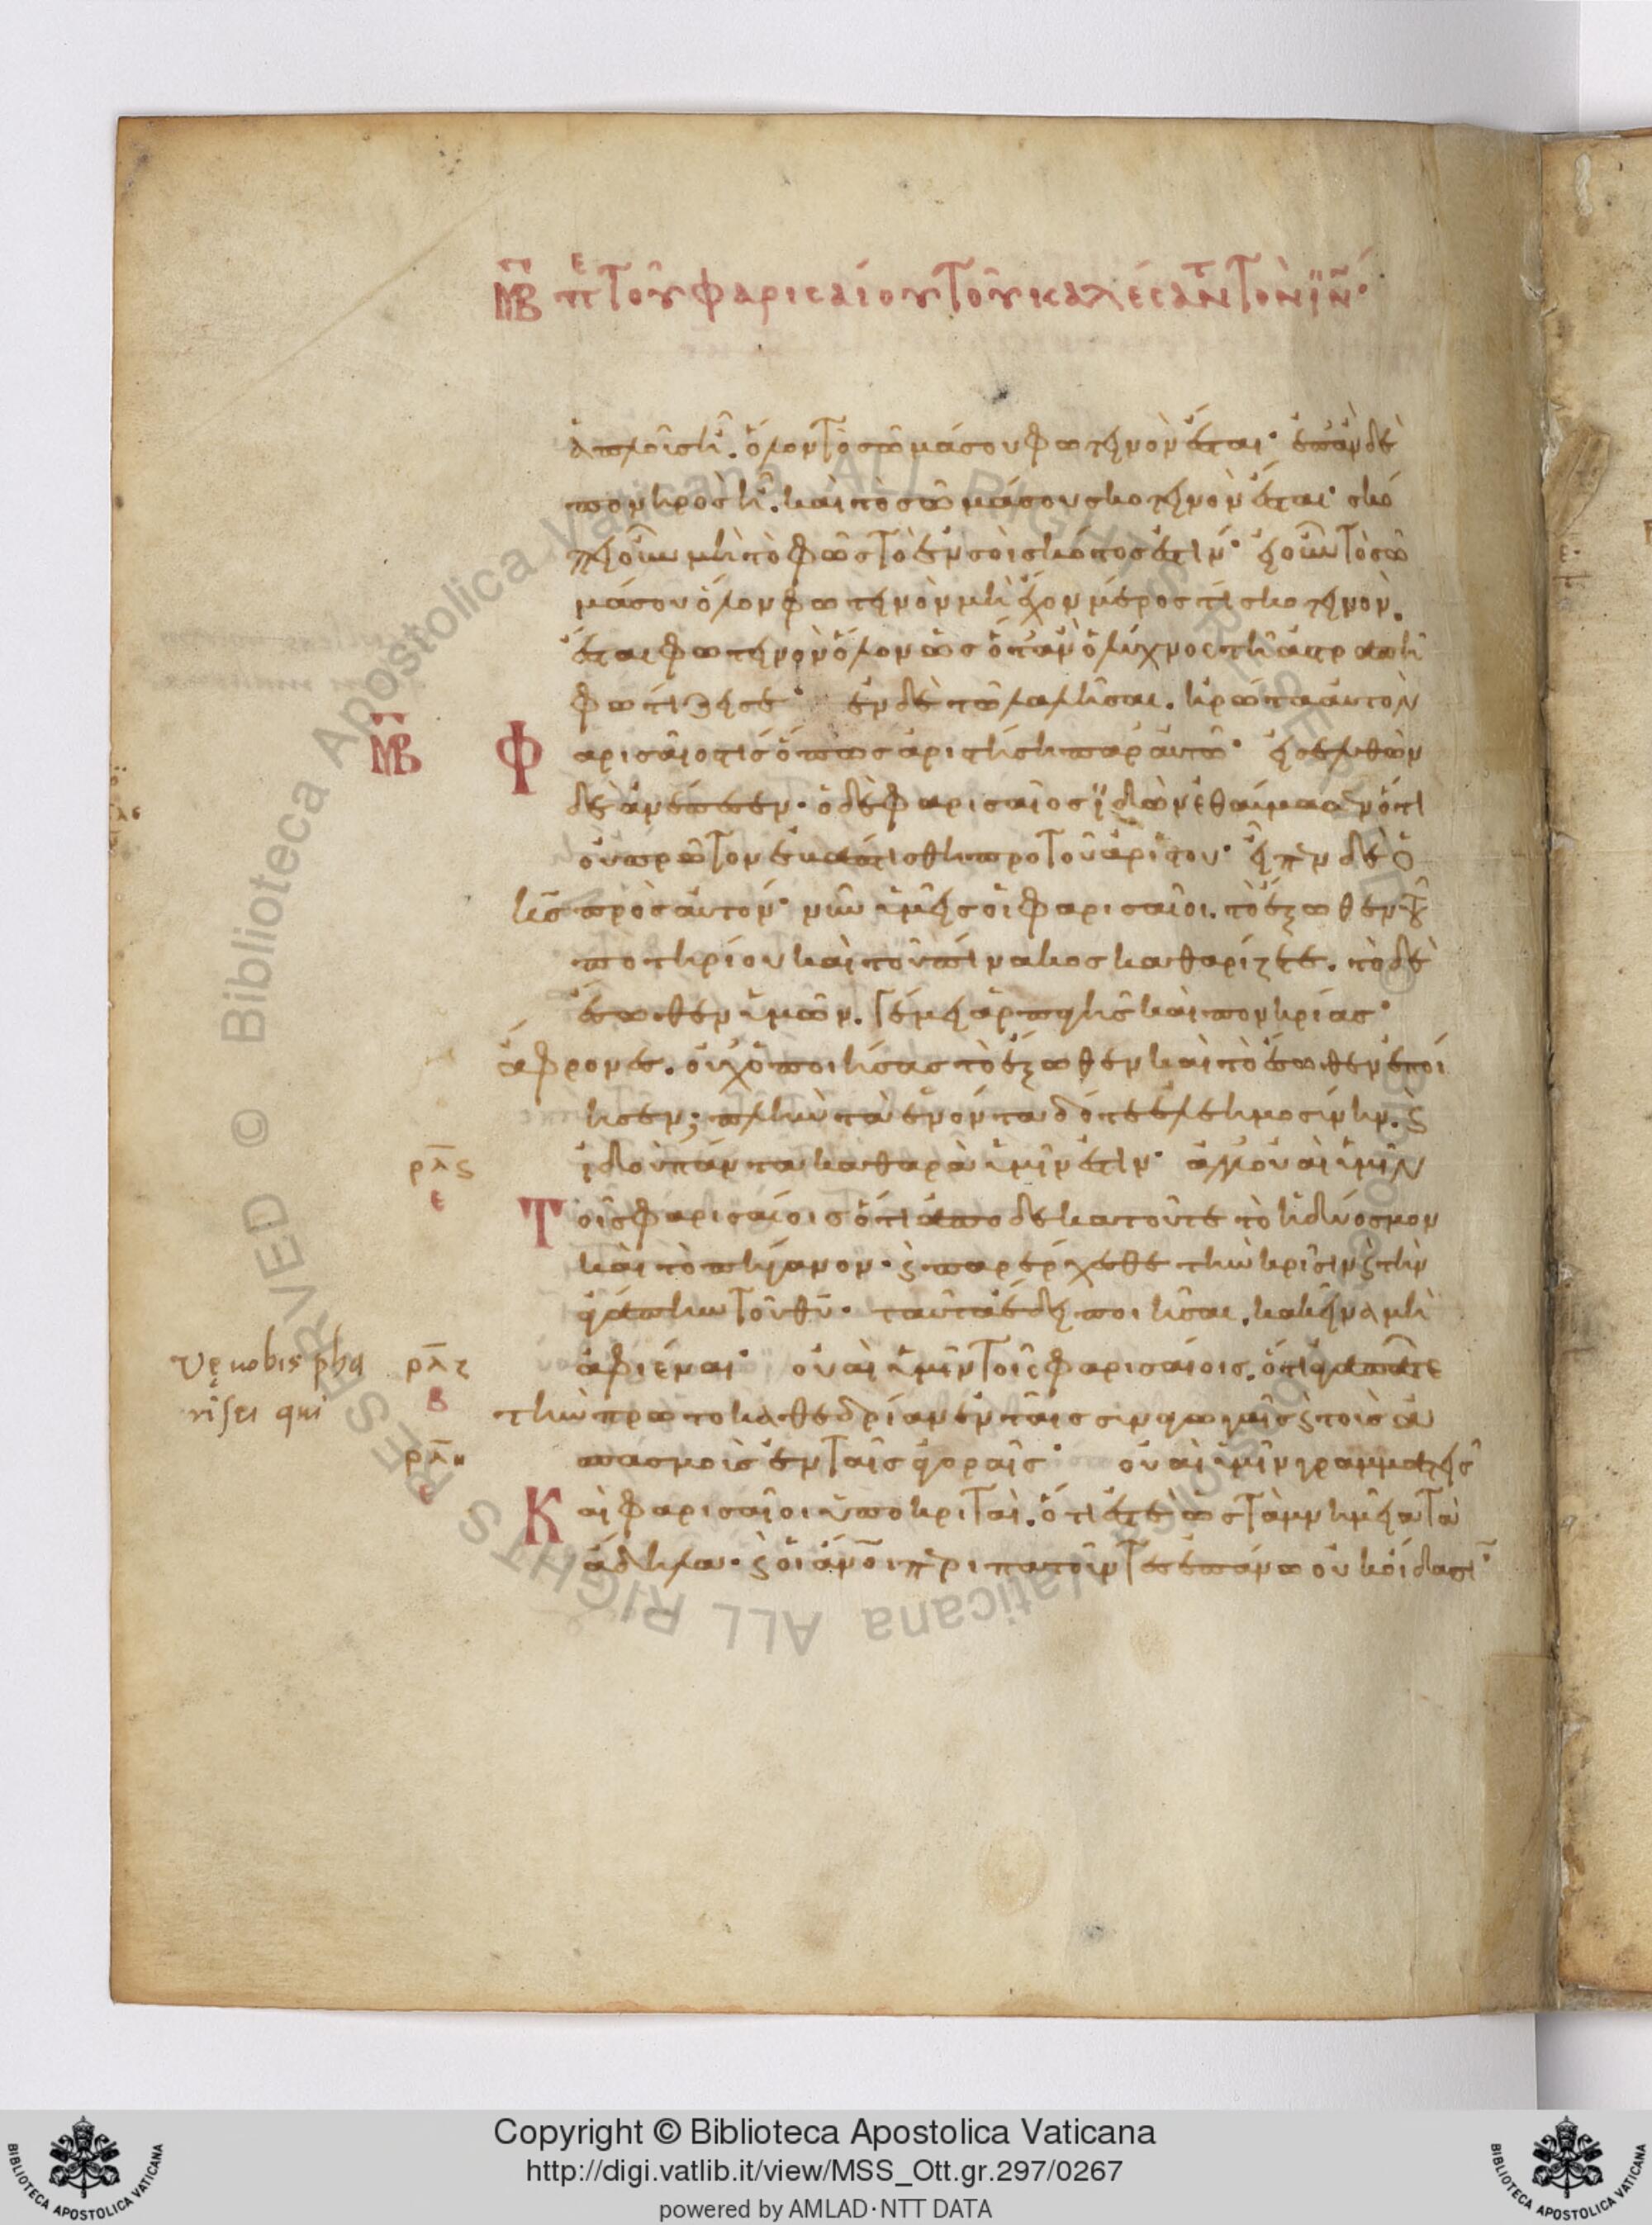 μβ πε τοῦ φαρισαίου τοῦ καλέσαντ τὸν ἰν·
ἁπλοῦς ἦ. ὅλον τὸ σῶμά σου φωτεινὸν ἔσται· ἐπὰν δὲ
πονηρὸς ἦ. καὶ τὸ σῶμά σου σκοτεινὸν ἔσται· σκό
πει οὖν μὴ τὸ φῶς τὸ ἐν σοὶ σκότος ἐστὶν· εἰ οὖν τὸ σῶ
μά σου ὅλον φωτεινὸν μὴ ἔχον μέρος τὶ σκοτεινὸν.
ἔσται φωτεινὸν ὅλον ὡς ὅταν ὁ λύχνος τῆ ἀστραπῆ
φωτίζει σε· ἐν δὲ τῶ λαλῆσαι. ἠρώτα αὐτὸν
μβ Φαρισαῖος τὶς ὅπως ἀριστήση παρ' αὐτῶ· εἰσελθὼν
δὲ ἀνέπεσεν· ὁ δὲ Φαρισαῖος ἰδὼν ἐθαύμασεν ὅτι
οὐ πρῶτον ἐβαπτίσθη πρὸ τοῦ ἀρίστου· εἶπεν δὲ ὁ
κς πρὸς αὐτόν· νῦν ὑμεῖς οἱ Φαρισαῖοι. τὸ ἔξωθεν τοῦ
ποτηρίου καὶ τοῦ πίνακος καθαρίζετε. τὸ δὲ
ἔσωθεν ὑμῶν. γέμει ἁρπαγῆς καὶ πονηρίας·
ἄφρονες. οὐχ ὁ ποιήσας τὸ ἔξωθεν καὶ τὸ ἔσωθεν ἐποί
ησεν; πλὴν τὰ ἐνόντα δότε ἐλεημοσύνην. ϛ
ρλϛ ἰδοὺ πάντα καθαρὰ ὑμῖν ἐστὶν· ἀλλ' οὐαὶ ὑμῖν
ε Τοῖς Φαρισαίοις ὅτι ἀποδεκατοῦτε τὸ ἡδύοσμον
καὶ τὸ πήγανον· ϛ παρέρχεσθε τὴν κρίσιν ϛ τὴν
ἀγάπην τοῦ θυ· ταῦτα ἔδει ποιῆσαι. κακεῖνα μὴ
Vę nobis pha ρλζ ἀφιέναι· οὐαὶ ὑμῖν τοῖς Φαρισαίοις. ὅτι ἀγαπᾶτε
risei qui β τὴν πρωτοκαθεδρίαν ἐν ταῖς συναγωγαῖς ϛ τοὺς ἀ
ρλη σπασμοὺς ἐν ταῖς ἀγοραῖς· οὐαὶ ὑμῖν γραμματεῖς
ε Καὶ Φαρισαῖοι ὑποκριταὶ. ὅτι ἐστὲ ὡς τὰ μνημεῖα τὰ
ἄδηλα· ϛ οἱ ἄνοι περιπατοῦντες ἐπάνω οὐκ οἴδασι·
Copyright © Biblioteca Apostolica Vaticana
http://digi.vatlib.it/view/MSS_Ott.gr.297/0267
powered by AMLAD·NTT DATA